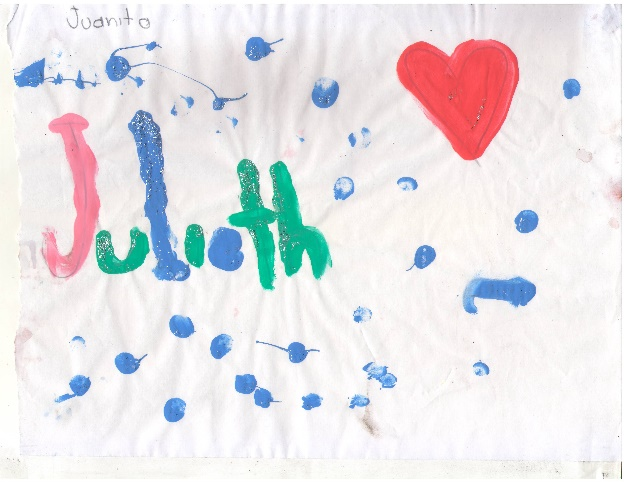 Juanito
Julieth